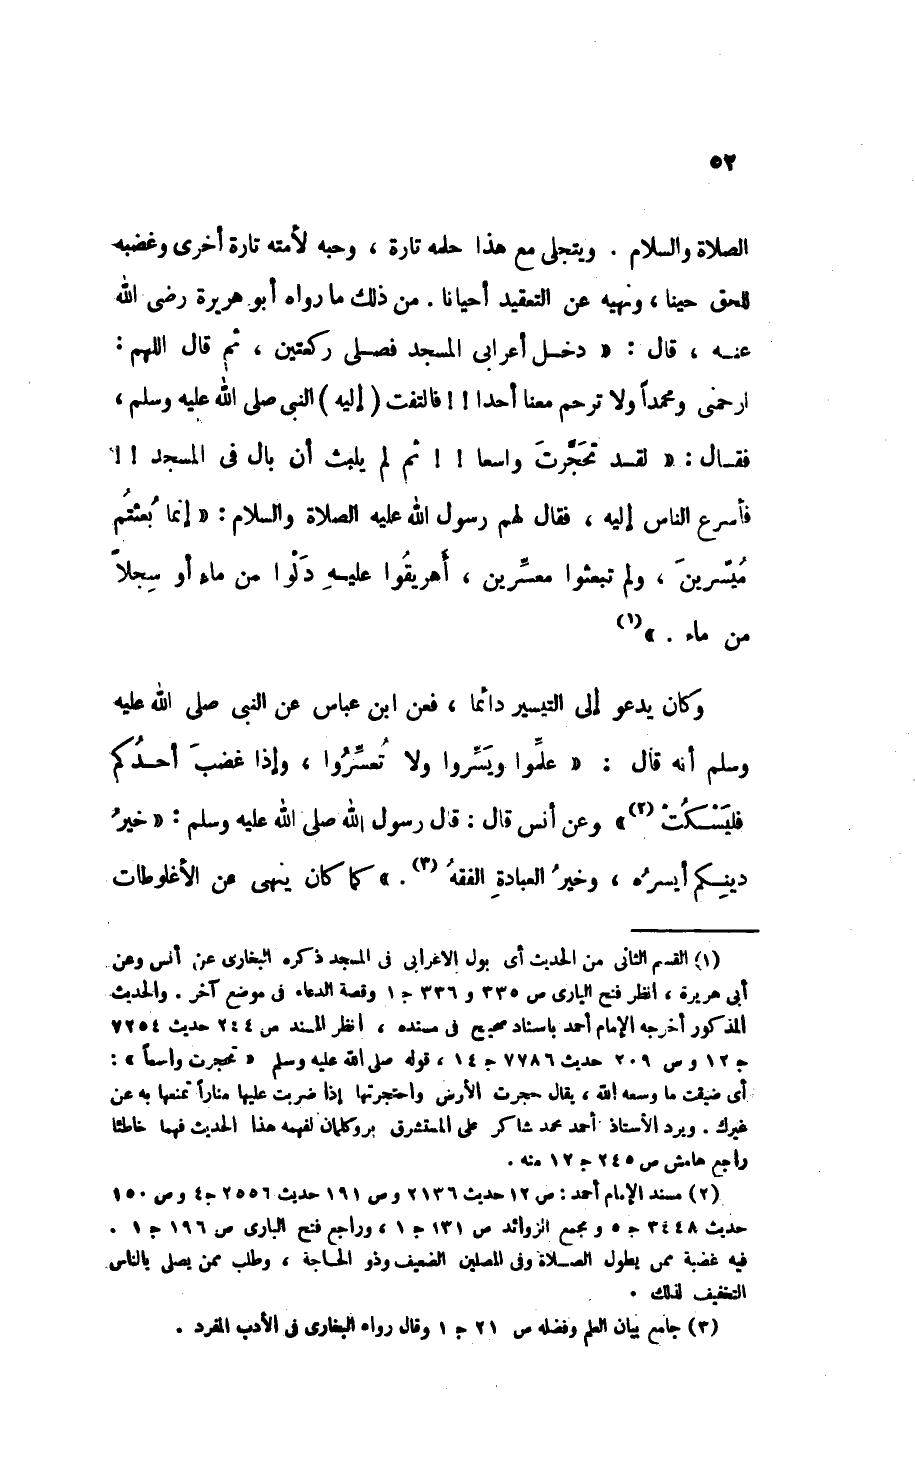 ٥٢
الصلاة والسلام . ويتجلى مع هذا حلمه تارة ، وحبه لأمته تارة أخرى وغضبه
للحق حينا ، ونهيه عن التعقيد أحيانا . من ذلك ما رواه أبو هريرة رضى الله
عنــه ، قال : « دخــل أعرابى المسجد فصــلى ركعتين ، ثم قال اللهم :
ارحمنى ومحمداً ولا ترحم معنا أحدا ! ! فالتفت ( إليه ) النبى صلى الله عليه وسلم ،
فقــال : « لقــد تحَجَّرتَ واسعا ! ! ثم لم يلبث أن بال فى المسجد ! !
فأسرع الناس إليه ، فقال لهم رسول الله عليه الصلاة والسلام : « إنما بُعثتُم
مُيسّرينَ ، ولم تبعثوا معسِّرين ، أَهريقُوا عليــهِ دَلْوا من ماء أو سِجلاً
من ماء . » (١)
وكان يدعو إلى التيسير دائما ، فعن ابن عباس عن النبى صلى الله عليه
وسلم أنه قال : « علِّموا ويَسِّروا ولا تُعسِّرُوا ، وإذا غضبَ أحــدُكم
فليَسْــكُتْ (٢) » وعن أنس قال : قال رسول الله صلى الله عليه وسلم : « خيرُ
دينِــكم أيسرُه ، وخيرُ العبادةِ الفقهُ (٣) . » كما كان ينهى عن الأغلوطات
(١) القسم الثانى من الحديث أى بول الاعرابى فى المسجد ذكره البخارى عن أنس وعن
أبى هريرة ، أنظر فتح البارى ص ٣٣٥ و ٣٣٦ ج ١ وقصة الدعاء فى موضع آخر . والحديث
المذكور أخرجه الإمام أحمد باسناد صحيح فى مسنده ، انظر المسند ص ٢٤٤ حديث ٧٢٥٤
ج ١٢ و ص ٢٠٩ حديث ٧٧٨٦ ج ١٤ ، قوله صلى الله عليه وسلم « تحجرت واسعاً » :
أى ضيقت ما وسعه الله ، يقال حجرت الأرض واحتجرتها إذا ضربت عليها مناراً تمنعها به عن
غيرك . ويرد الأستاذ أحمد محمد شاكر على المستشرق بروكلمان لفهمه هذا الحديث فهما خاطئا
راجع هامش ص ٢٤٥ ج ١٢ منه .
(٢) مسند الإمام أحمد : ص ١٢ حديث ٢١٣٦ و ص ١٩١ حديث ٢٥٥٦ ج ٤ و ص ١٥٠
حديث ٣٤٤٨ ج ٥ و مجمع الزوائد ص ١٣١ ج ١ ، وراجع فتح البارى ص ١٩٦ ج ١ .
فيه غضبة ممن يطول الصــلاة وفى المصلين الضعيف وذو الحــاجة ، وطلب ممن يصلى بالناس
التخفيف لذلك .
(٣) جامع بيان العلم وفضله ص ٢١ ج ١ وقال رواه البخارى فى الأدب المفرد .